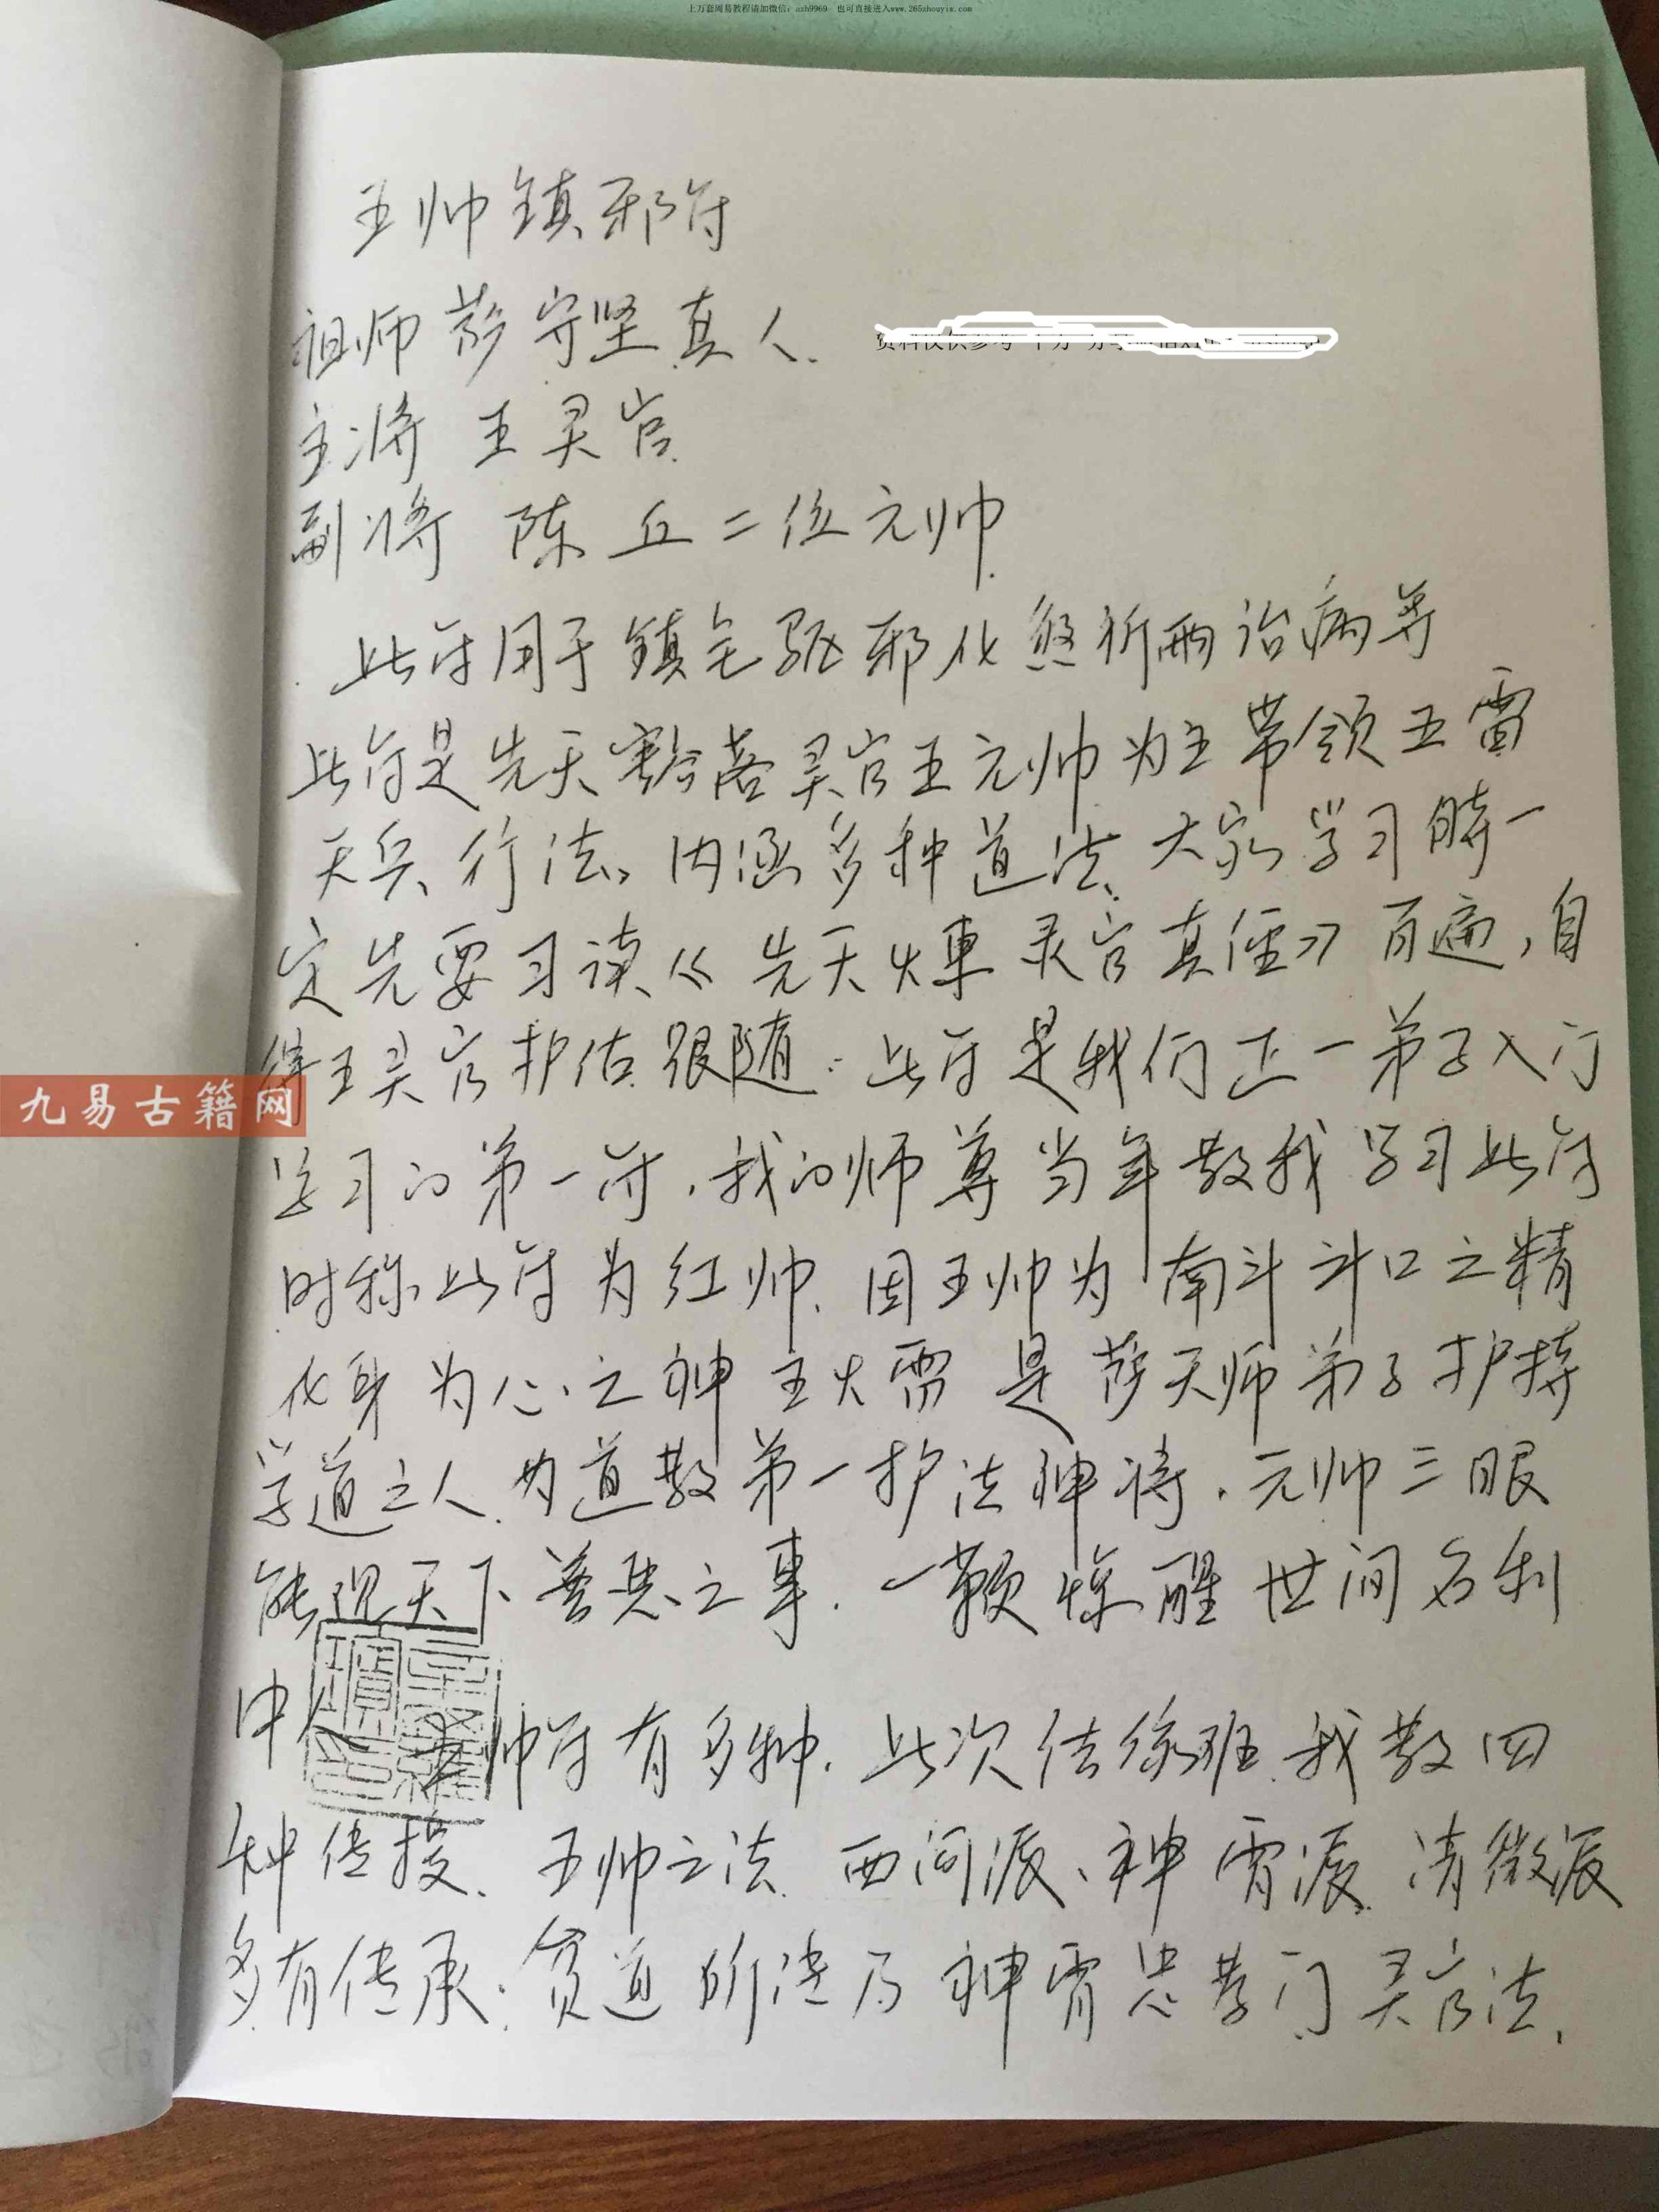 上万套周易教程请加微信：azh9969 也可直接进入www.265zhouyix.com
王帅镇邪符
祖师萨守坚真人.
主将 王灵官
副将 陈 丘二位元帅
此符用于镇宅驱邪化煞祈雨治病等
此符是先天豁落灵官王元帅为主带领五雷
天兵行法、内涵多种道法、大家学习时一
定先要习读《先天火車灵官真经》百遍，自
得王灵官护佑跟随.此符是我们正一弟子入门
学习的第一符.我的师尊当年教我学习此符
时称此符为红帅、因王帅为南斗斗口之精
化身为心之神主火雷是萨天师弟子护持
学道之人.为道教第一护法神将.元帅三眼
能观天下善恶之事.一鞭惊醒世间名利
中人 王帅符有多种.此次法 班 我教四
种传授、王帅之法 西河派、神霄派 清微派
多有传承.贫道所传乃神霄忠孝门灵官法.
九易古籍网